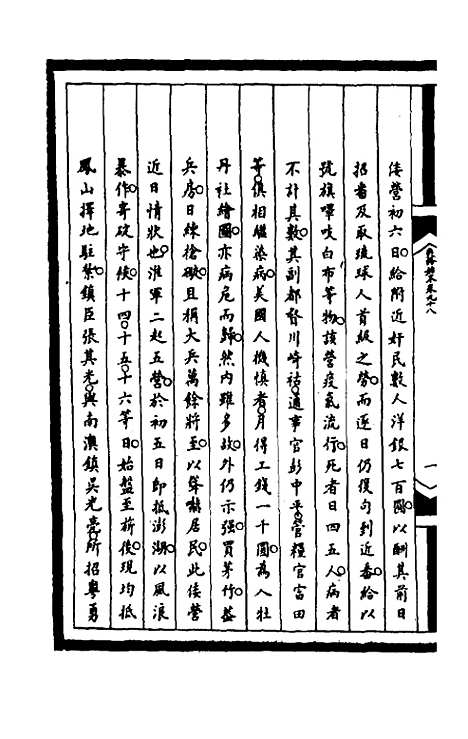 倭營初六日給附近奸民數人洋銀七百圓以酬其前日
招番及取琉球人首級之勞而逐日仍復勾到近番給以
號旗嗶吱白布等物該營疫氣流行死者日四五人病者
不計其數其副都督川崎祐通事官彭中平營糧官富田
等俱相繼染病美國人機慎者月得工錢一千圓為入牡
丹社繪圖亦病危而歸然內雖多故外仍亦強買茅竹蓋
兵房日練搶礮且稱大兵萬餘將至以聳嚇居民此倭營
近日情狀也淮軍二起五營於初五日即抵澎湖以風浪
暴作寄碇守候十四十五十六等日始盤至旂後現均抵
鳳山擇地駐紮鎮臣張其光與南澳鎮吳光亮所招粵勇
一